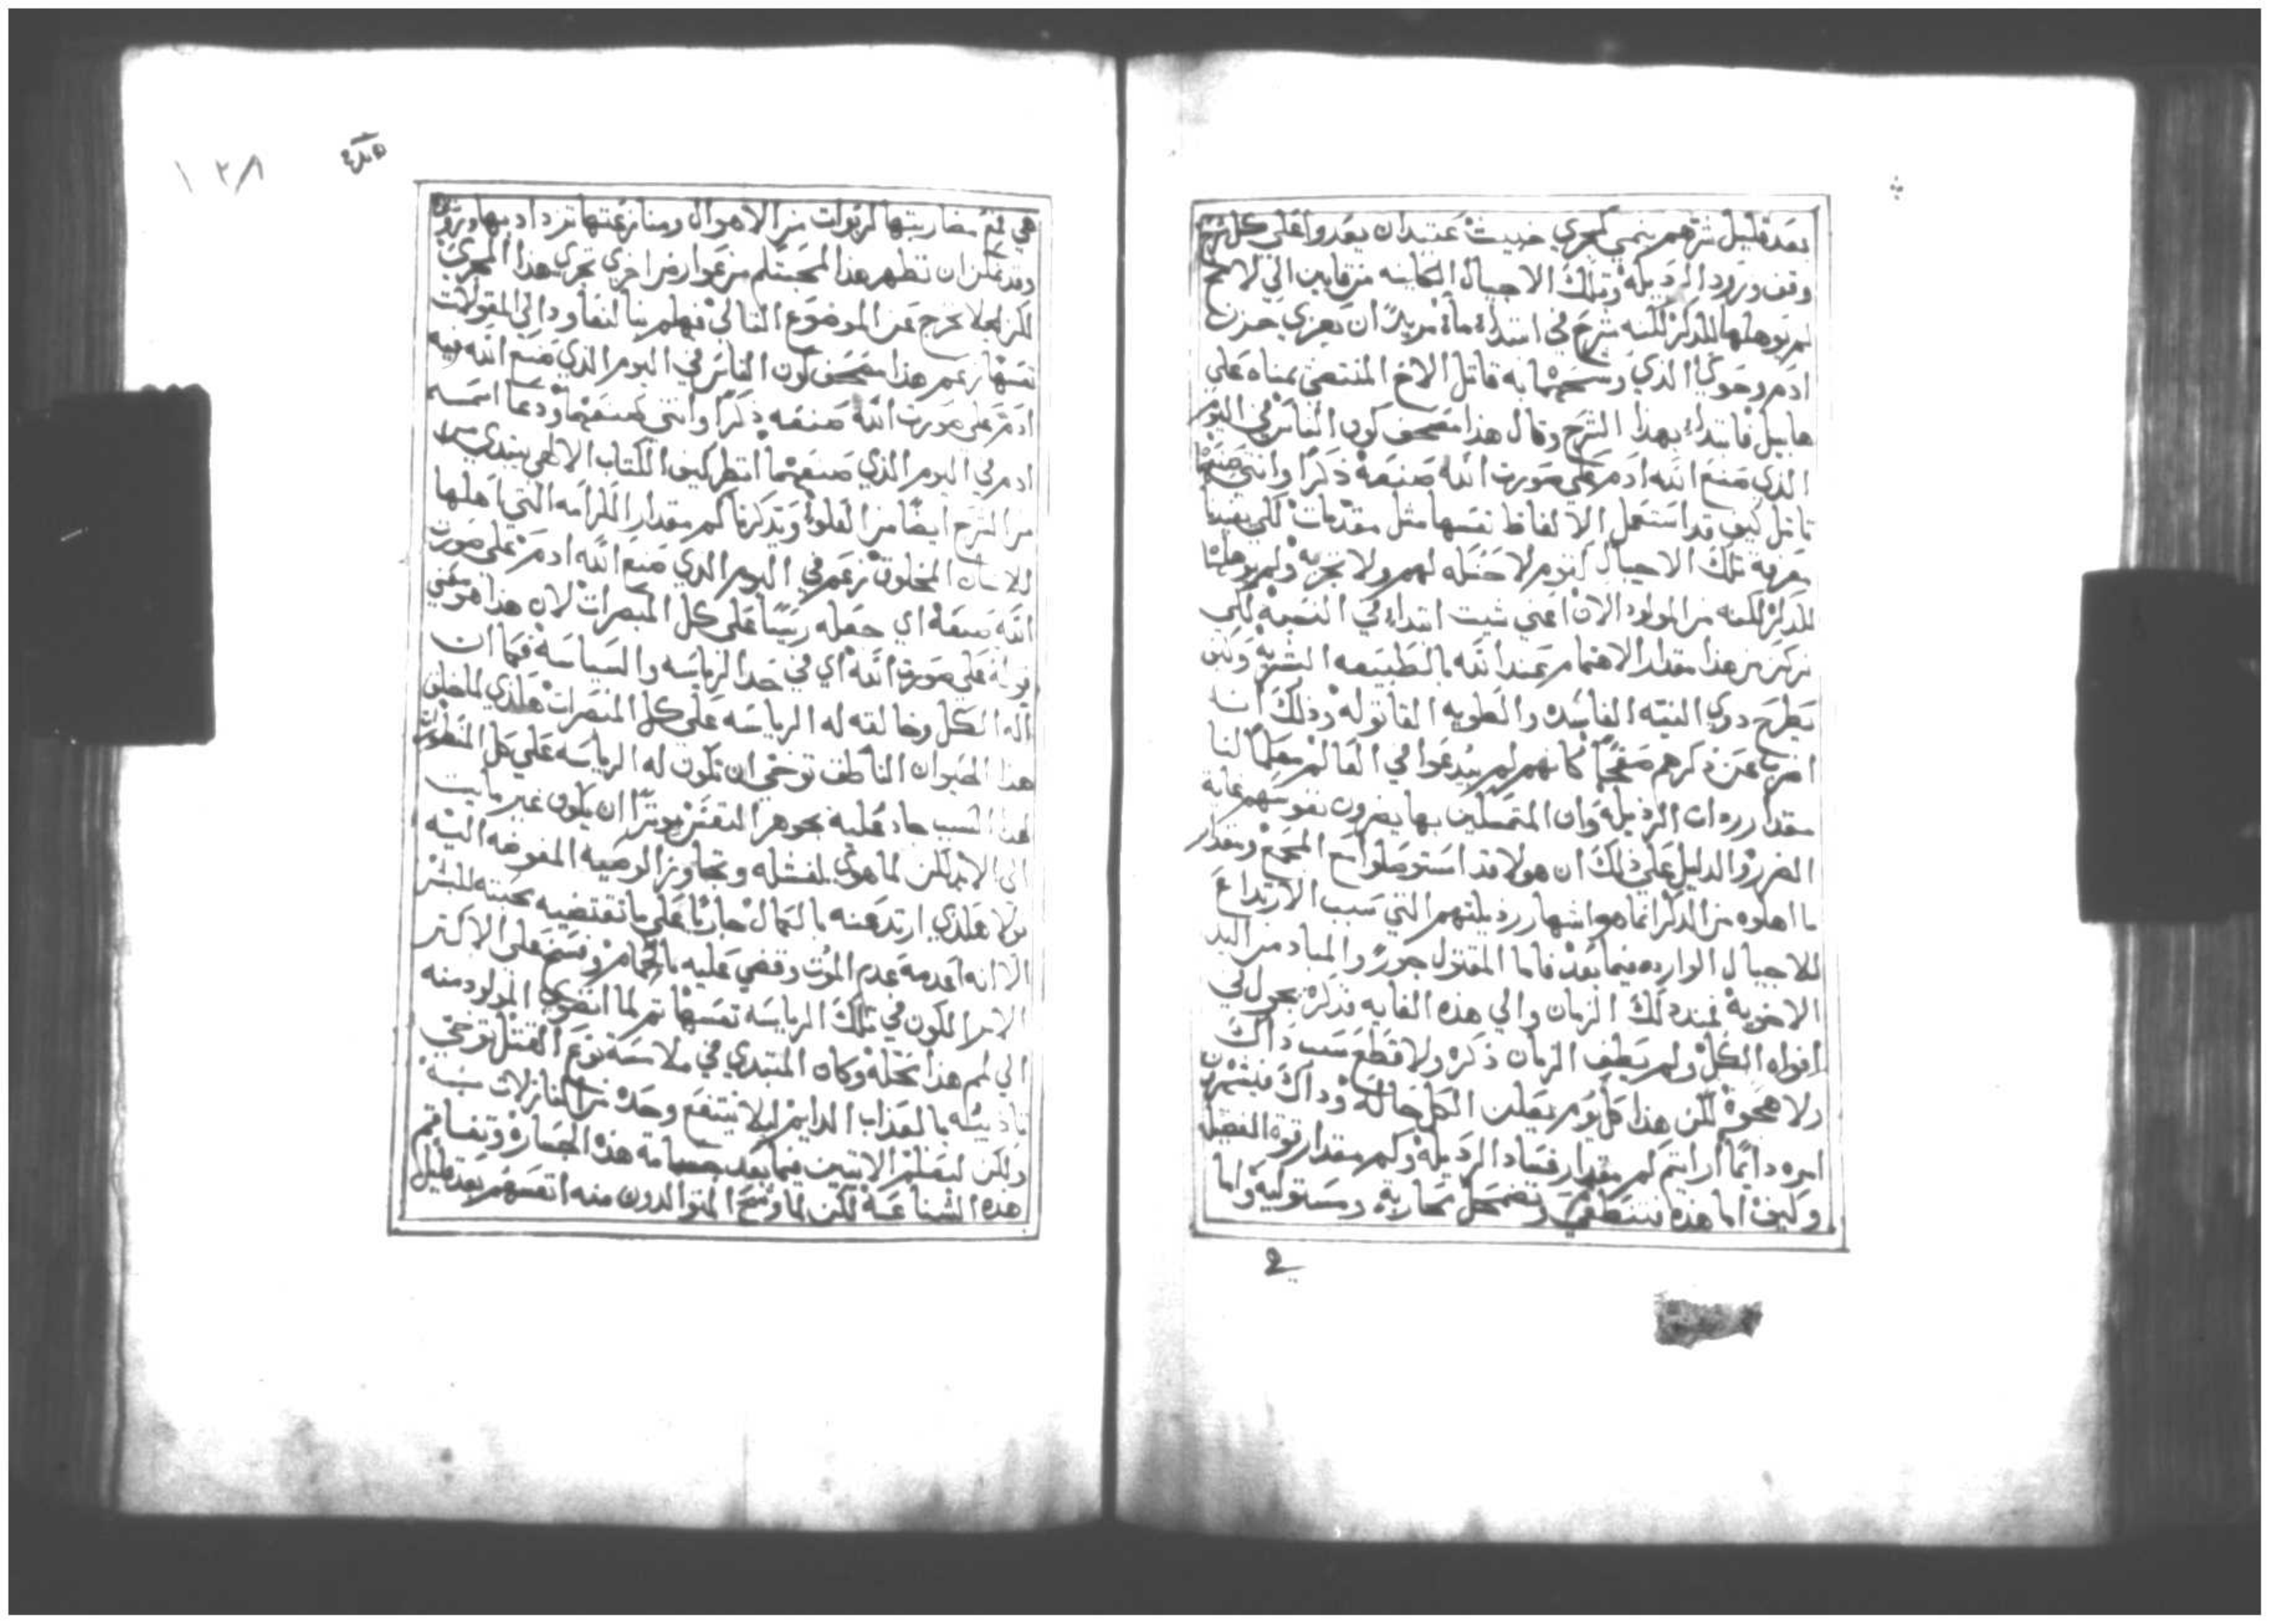 بعد قليل شرهم ينمي كمجري خبيث عتيد ان يعدوا علي كل شرح
وقف ورود الرذيله وتلك الاجيال الكاينه من قايين التي لا
لم يوهلها للذكر لكنه شرح في ابتداه مريدًا ان يعزي حزن
ادم وحوي الذي وسمهما به قاتل الاخ المنتضي يمناه علي
هابيل فابتدا بهذا الشرح وقال هذا مصحف كون الناس في اليوم
الذي صنع الله ادم علي صورت الله صنعه ذكرًا وانثي صنعهما
تامل كيف قد استعمل الالفاظ نفسها مثل مقدمات لكي يفيدنا
معرفة تلك الاجيال كقوم لا حفله لهم ولا تجربه ولم يوهلها
للذكر لكنه من المولود الان اعني شيت ابتدا في النسبه لكي
تركن من هذا مقدار الاهتمام عند الله بالطبيعه البشريه وكيف
يطرح دوي النيه الفاسده والطويه القاتوله وذلك انه
اضرب عن ذكرهم صفحًا كانهم لم يبدعوا في العالم معلمًا لنا
مقدار رداة الرذيله وان المتمسكين بها يضرون نفوسهم غاية
الضرر والدليل علي ذلك ان هولا قد استوصلوا مع المجمع ومقدار
ما اهلوه من الذكر انما هو اشهار رذيلتهم التي سبب الارتداع
للاجيال الوارده فيما بعد فاما المقتول جورًا والمباد من اليد
الاخويه فمند ذلك الزمان والي هذه الغايه فذكره يجول في
افواه الكل ولم يطفِ الزمان ذكره ولا قطع سبب داك
ولا هجوه لكن هذا كل يوم يعلن الكل حاله وداك فيشهرون
امره دايمًا ارايتم كم مقدار فساد الرذيله وكم مقدار قوة الفضيله
وكيف اما هذه فتنطفي وتضمحل محاربة ومستوليه واما
هي فمع مضاربتها لربوات من الاهوال ومنازعتها تزداد بها
وقد يمكن ان تظهر هذا المجتلم من عوارض اخري تجري هذا المجري
لكن لجلا نخرج عن الموضوع التالي فهلم بنا لنعاود الي المقولات
نفسها زعم هذا مصحف كون الناس في اليوم الذي صنع الله فيه
ادم علي صورت الله صنعه ذكرًا وانثي صنعهما ودعا اسمه
ادم في اليوم الذي صنعهما انظر كيف الكتاب الالهي يبتدي
من الشرح ايضًا من العلو ويذكرنا كم مقدار الكرامه التي اهلها
للانسان المخلوق زعم في اليوم الذي صنع الله ادم علي صورت
الله صنعه اي جعله ريسًا علي كل المبصرات لان هذا هو معني
قوله علي صورت الله اي في حد الرياسه والسياسه فكما ان
اله الكل وخالقه له الرياسه علي كل المبصرات هكذي للمخلوق
هذا الحيوان الناطق توخي ان تكون له الرياسه علي كل المنظورات
لهذا السبب جاد عليه بجوهر النفس موثرًا ان يكون غير مايت
الي الابد لكن لما هوي لفشله وتجاوز الوصيه المفوضه اليه
ولا هكذي ارتد عنه بالكمال جاريًا علي ما تقتضيه محبته للبشر
الا انه اعدمه عدم الموت وقضي عليه بالحمام وفسح علي الاكثر
الامر الكون في تلك الرياسه نفسها ثم لما انضوي المولود منه
الي لم هذا بحله وكان المبتدي في ملامسة نوع القتل توخي
تاديبه بالعذاب الدايم ليلا ينتفع وحده من النازلات به
ولكن ليعلم الاتيين فيما بعد جسامة هذه الجساره وتفاقم
هذه الشناعه لكن لما وسخ المتوالدون منه انفسهم بعد قليل
١٢٨